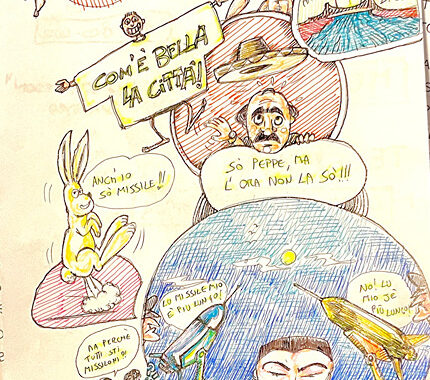 COM'È BELLA
LA CITTÀ!
ANCH'IO
SÒ MISSILE!!
SÒ PEPPE, MA
L'ORA NON LA SÒ!!!
LU MISSILE MIO
È PIÙ LUNGO!
NO! LU
MIO JÈ
PIÙ LUNGO!
MA PERCHÈ
TUTTI STI
MISSILONI?!